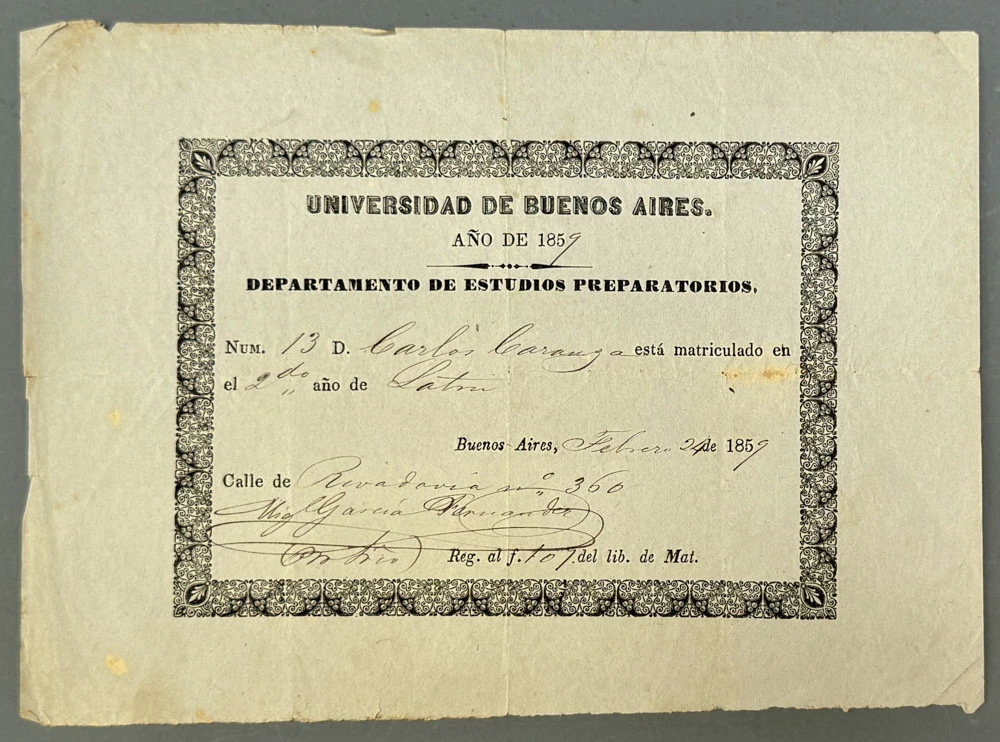 UNIVERSIDAD DE BUENOS AIRES.
AÑO DE 1859
DEPARTAMENTO DE ESTUDIOS PREPARATORIOS.
NUM. 13 D. Carlos Caranza está matriculado en
el 2do año de Latin
Buenos-Aires, Febrero 24 de 1859
Calle de Rivadavia no 360
Mig Garcia Fernandez
Reg. al f. 107 del lib. de Mat.